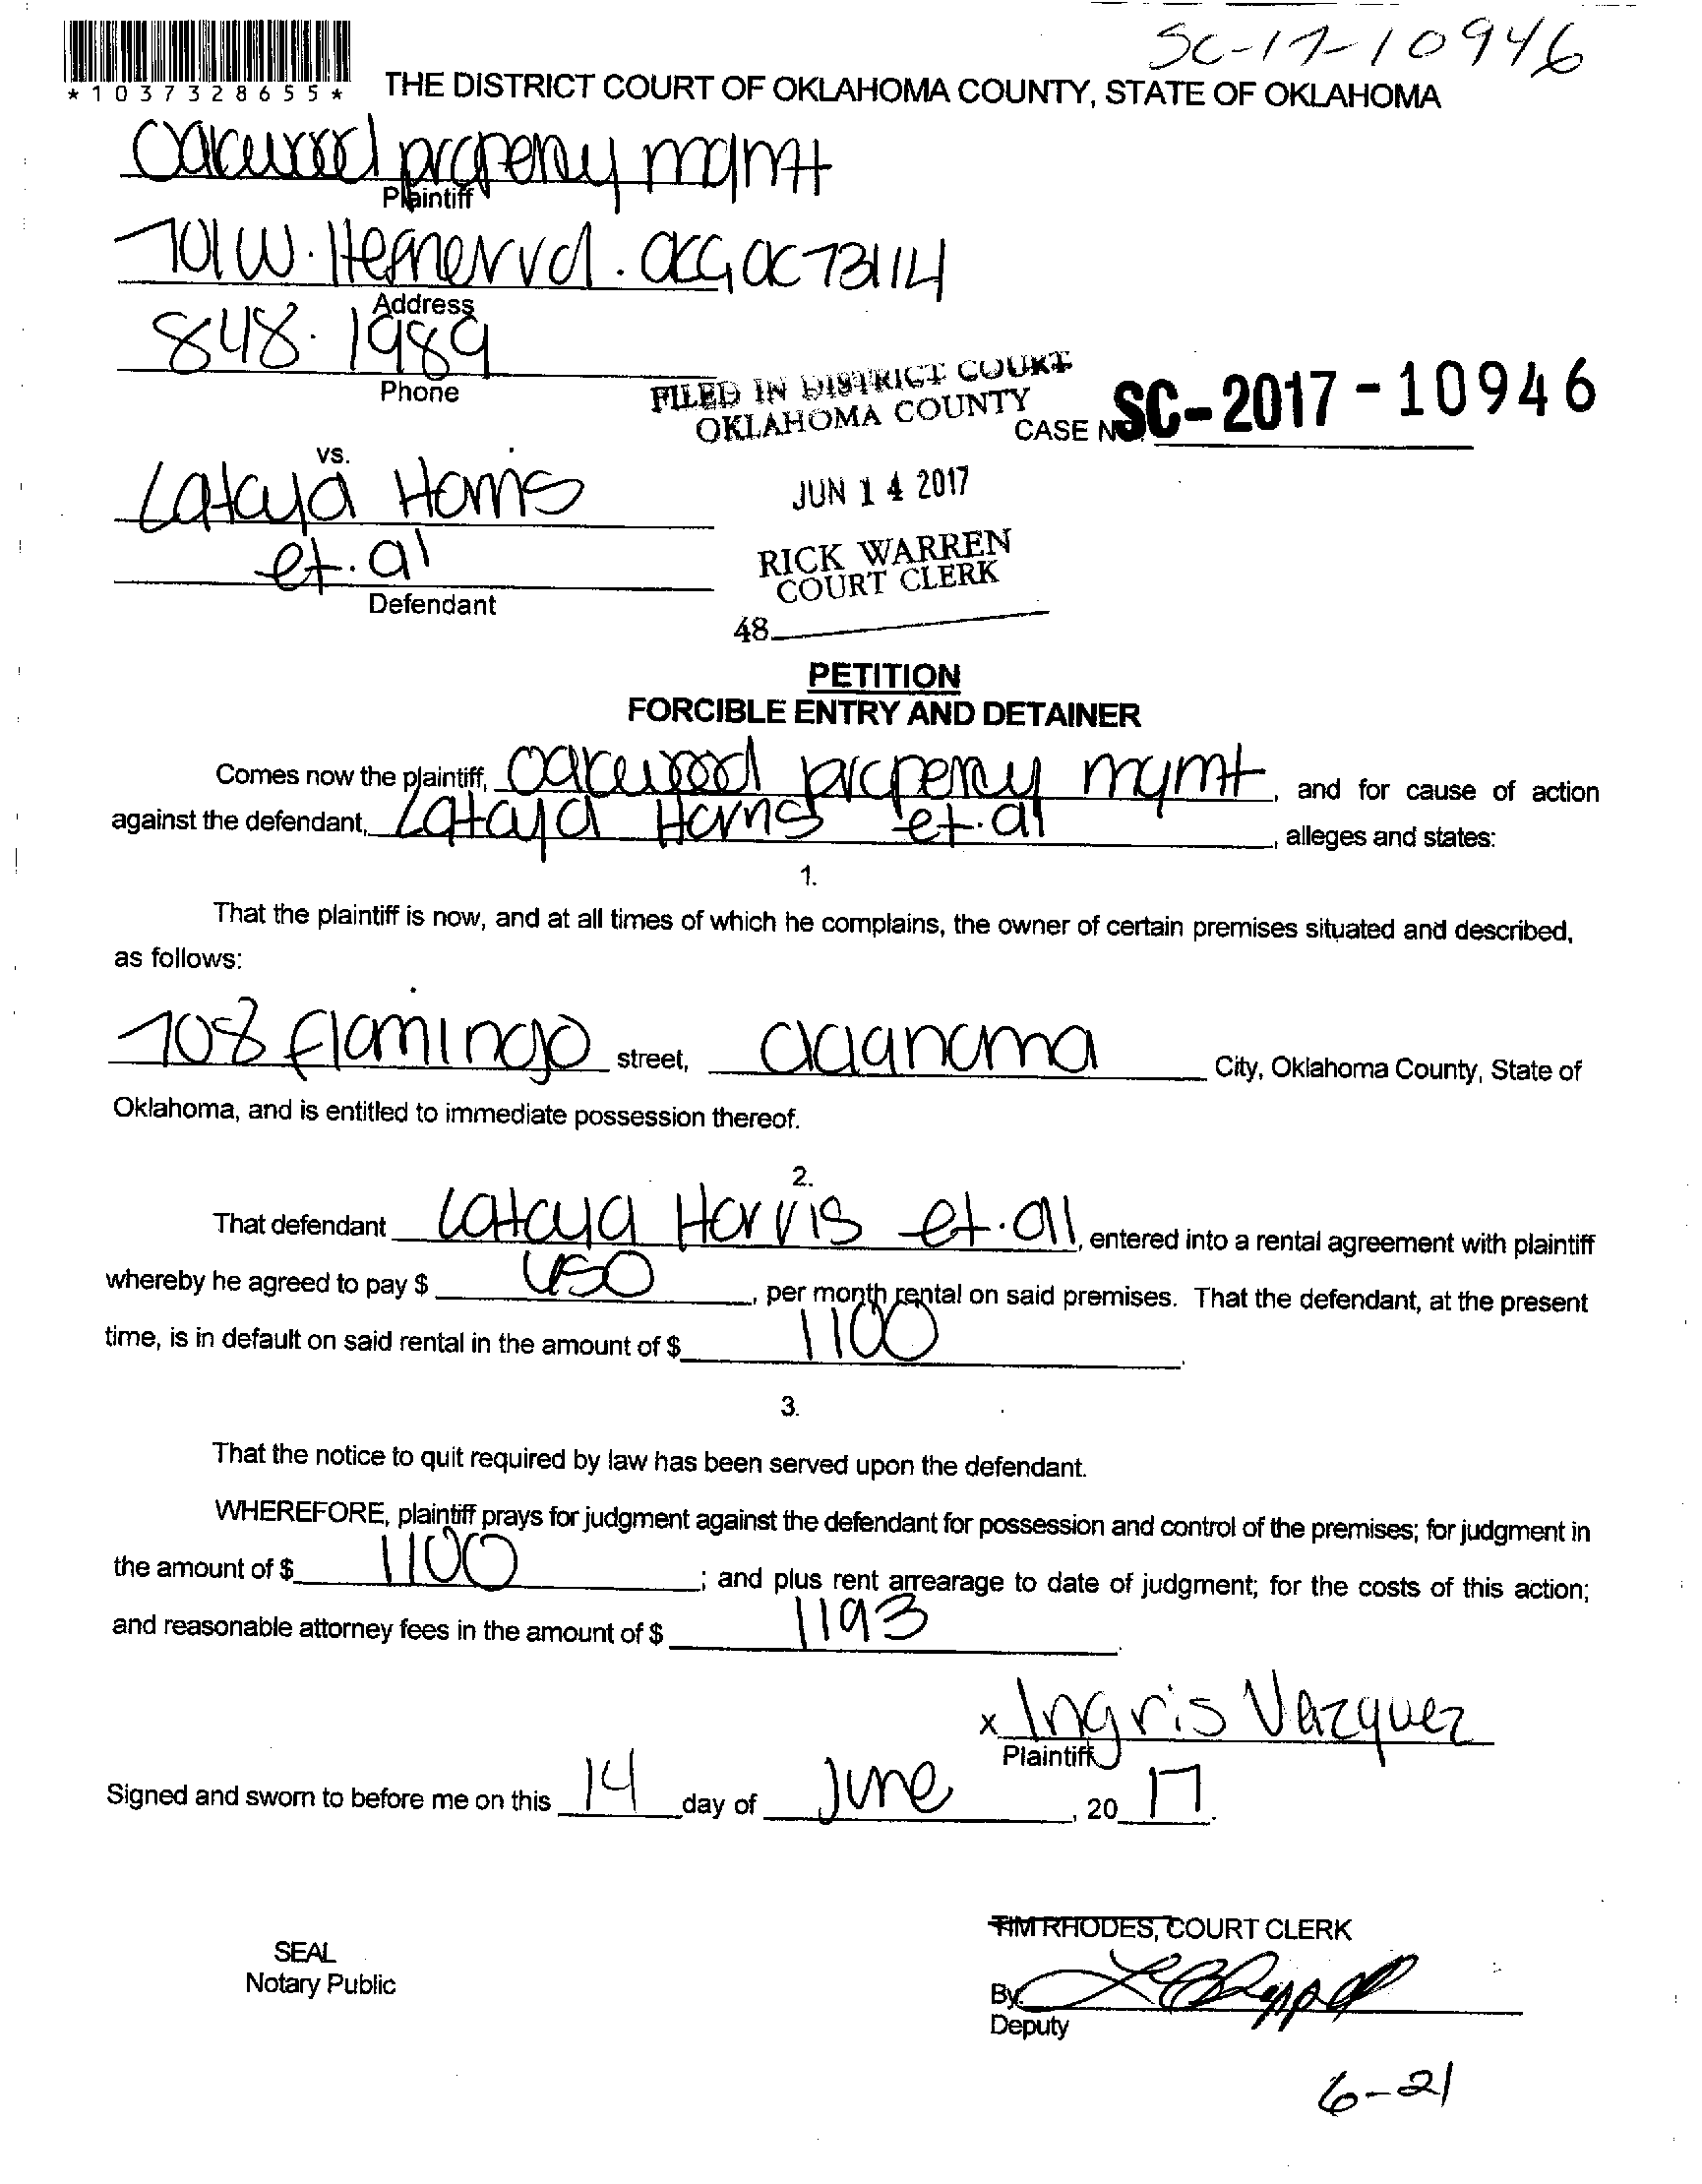 SC-17-10946
*1037328655*
THE DISTRICT COURT OF OKLAHOMA COUNTY, STATE OF OKLAHOMA
Oakwood property mgmt
Plaintiff
701 W. Hefner rd. OKC OK 73114
Address
848-1989
Phone
FILED IN DISTRICT COURT
OKLAHOMA COUNTY
CASE NO. SC-2017-10946
vs.
Lataya Harris
JUN 14 2017
et. al
RICK WARREN
COURT CLERK
Defendant
48
PETITION
FORCIBLE ENTRY AND DETAINER
Comes now the plaintiff, Oakwood property mgmt, and for cause of action
against the defendant, Lataya Harris et. al, alleges and states:
1.
That the plaintiff is now, and at all times of which he complains, the owner of certain premises situated and described,
as follows:
708 flamingo street, City, Oklahoma County, State of
Oklahoma, and is entitled to immediate possession thereof.
2.
That defendant Lataya Harris et. al, entered into a rental agreement with plaintiff
whereby he agreed to pay $, per month rental on said premises. That the defendant, at the present
time, is in default on said rental in the amount of $ 1100.
3.
That the notice to quit required by law has been served upon the defendant.
WHEREFORE, plaintiff prays for judgment against the defendant for possession and control of the premises; for judgment in
the amount of $ 1100; and plus rent arrearage to date of judgment; for the costs of this action;
and reasonable attorney fees in the amount of $ 1193.
x Ingris Vazquez
Plaintiff
Signed and sworn to before me on this 14 day of June, 20 17.
TIM RHODES, COURT CLERK
SEAL
Notary Public
By:
Deputy
6-21